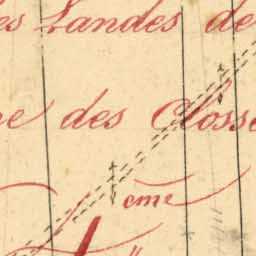 es Landes de
e des Closs
eme